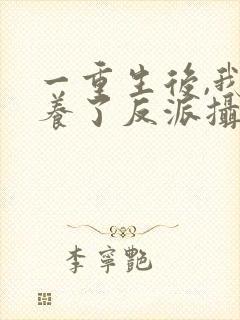 一重生後,我
養了反派攝
李寧艷